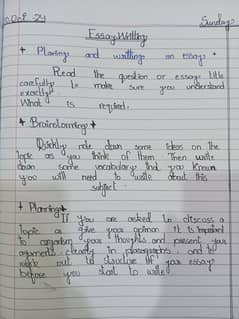 Oct 24
Sunday
Essay Writting
+ Planing and writting an essay +
Read the question or essay title
carefully to make sure you understand
exactly
What is required.
* Brainstorming +
Quickly note down some ideas on the
topic as you think of them Then write
down some vocabulary that you know
you will need to write about this
subject
+ Planning +
If you are asked to discuss a
topic or give your opinion it is important
to organize your thoughts and present your
arguments clearly in paragraphs and to
work out to structure of your essay
before you start to write